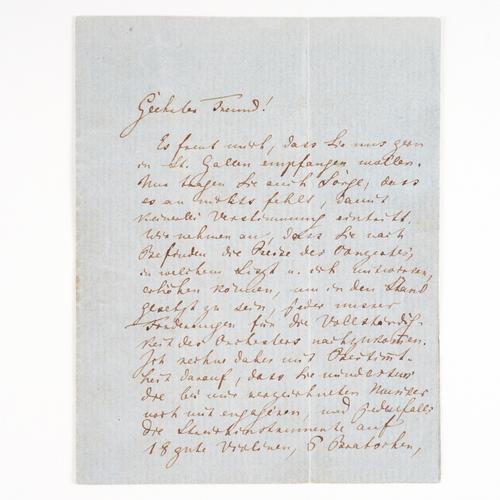 Geehrter Freund!
Es freut mich, dass Sie uns gern
in St. Gallen empfangen wollen.
Nun tragen Sie auch Sorge, dass
es an nichts fehlt, damit
keinerlei Verstimmung eintritt.
Wir nehmen an, dass Sie nach
Befinden die Preise des Conzertes,
in welchem Liszt u. ich mitwirken,
erhöhen können, um in den Stand
gesetzt zu sein, jeder unserer
Forderungen für die Vollständig-
keit des Orchesters nachzukommen.
Ich rechne daher mit Bestimmt-
heit darauf, dass Sie mindestens
die bei mir verzeichneten Musiker
noch mit engagiren, und jedenfalls
die Streichinstrumente auf
18 gute Violinen, 6 Bratschen,